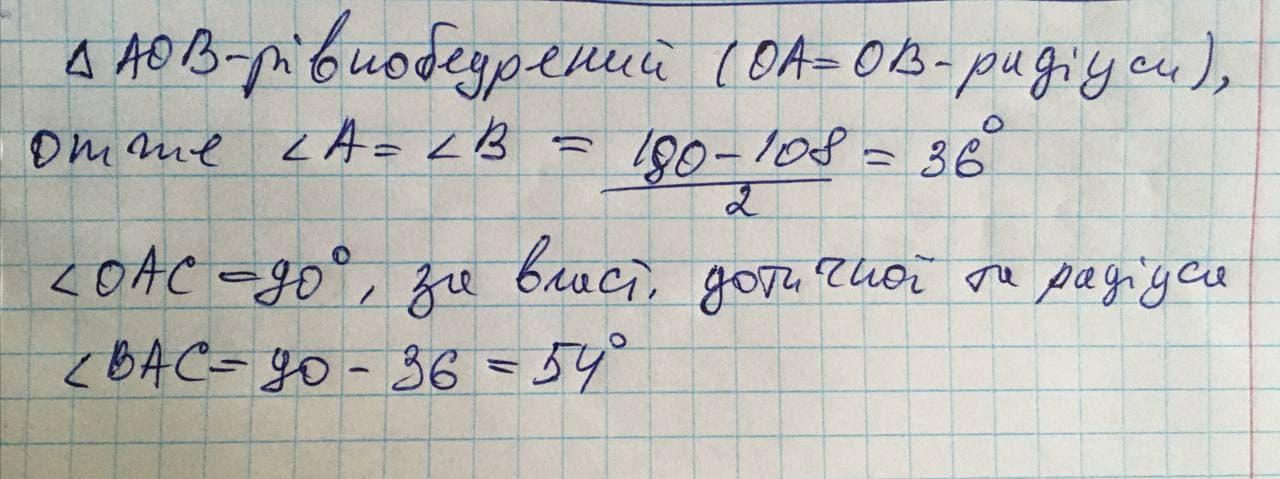 Δ AOB - рівнобедрений (OA = OB - радіуси),
отже ∠A = ∠B = (180 - 108)/2 = 36°
∠OAC = 90°, за власт. дотичної та радіуса
∠BAC = 90 - 36 = 54°